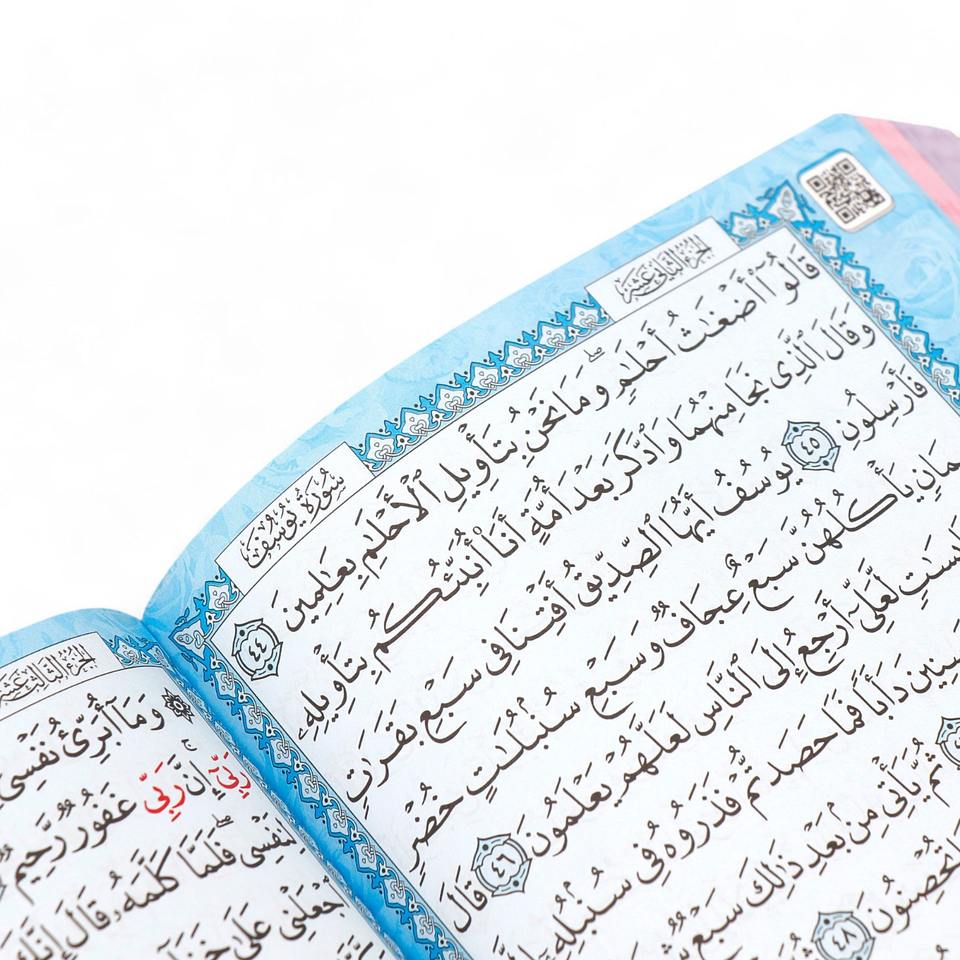 الجزء الثاني عشر
سُورَةُ يُوسُفَ
قَالُوٓا۟ أَضْغَٰثُ أَحْلَٰمٍ ۖ وَمَا نَحْنُ بِتَأْوِيلِ ٱلْأَحْلَٰمِ بِعَٰلِمِينَ ٤٤
وَقَالَ ٱلَّذِى نَجَا مِنْهُمَا وَٱدَّكَرَ بَعْدَ أُمَّةٍ أَنَا۠ أُنَبِّئُكُم بِتَأْوِيلِهِۦ
فَأَرْسِلُونِ ٤٥ يُوسُفُ أَيُّهَا ٱلصِّدِّيقُ أَفْتِنَا فِى سَبْعِ بَقَرَٰتٍ
مَانٍ يَأْكُلُهُنَّ سَبْعٌ عِجَافٌ وَسَبْعِ سُنۢبُلَٰتٍ خُضْرٍ
سَٰتٍ لَّعَلِّىٓ أَرْجِعُ إِلَى ٱلنَّاسِ لَعَلَّهُمْ يَعْلَمُونَ ٤٦ قَالَ
سِنِينَ دَأَبًا فَمَا حَصَدتُّمْ فَذَرُوهُ فِى سُنۢبُلِهِۦٓ إِلَّا
ثُمَّ يَأْتِى مِنۢ بَعْدِ ذَٰلِكَ سَبْعٌ
تُحْصِنُونَ ٤٨
الجزء الثالث عشر
۞ وَمَآ أُبَرِّئُ نَفْسِىٓ
رَبِّىٓ ۚ إِنَّ رَبِّى غَفُورٌ رَّحِيمٌ
لِنَفْسِى ۖ فَلَمَّا كَلَّمَهُۥ قَالَ إِنَّكَ
ٱجْعَلْنِى عَلَىٰ